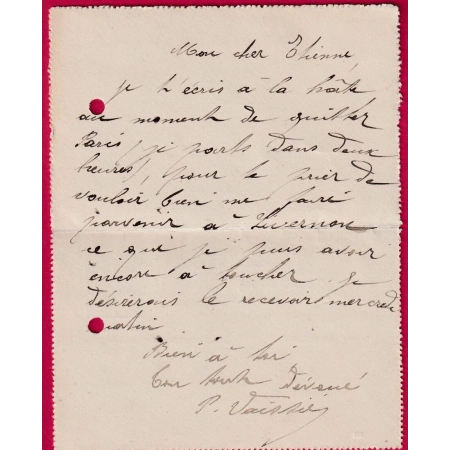 Mon cher Etienne,
je t'écris à la hâte
au moment de quitter
Paris, je parts dans deux
heures, pour te prier de
vouloir bien me faire
parvenir à Livernon
ce que je puis avoir
encore à toucher. Je
désirerais le recevoir mercredi
matin
Bien à toi
Ton tout dévoué
P. Vaissié